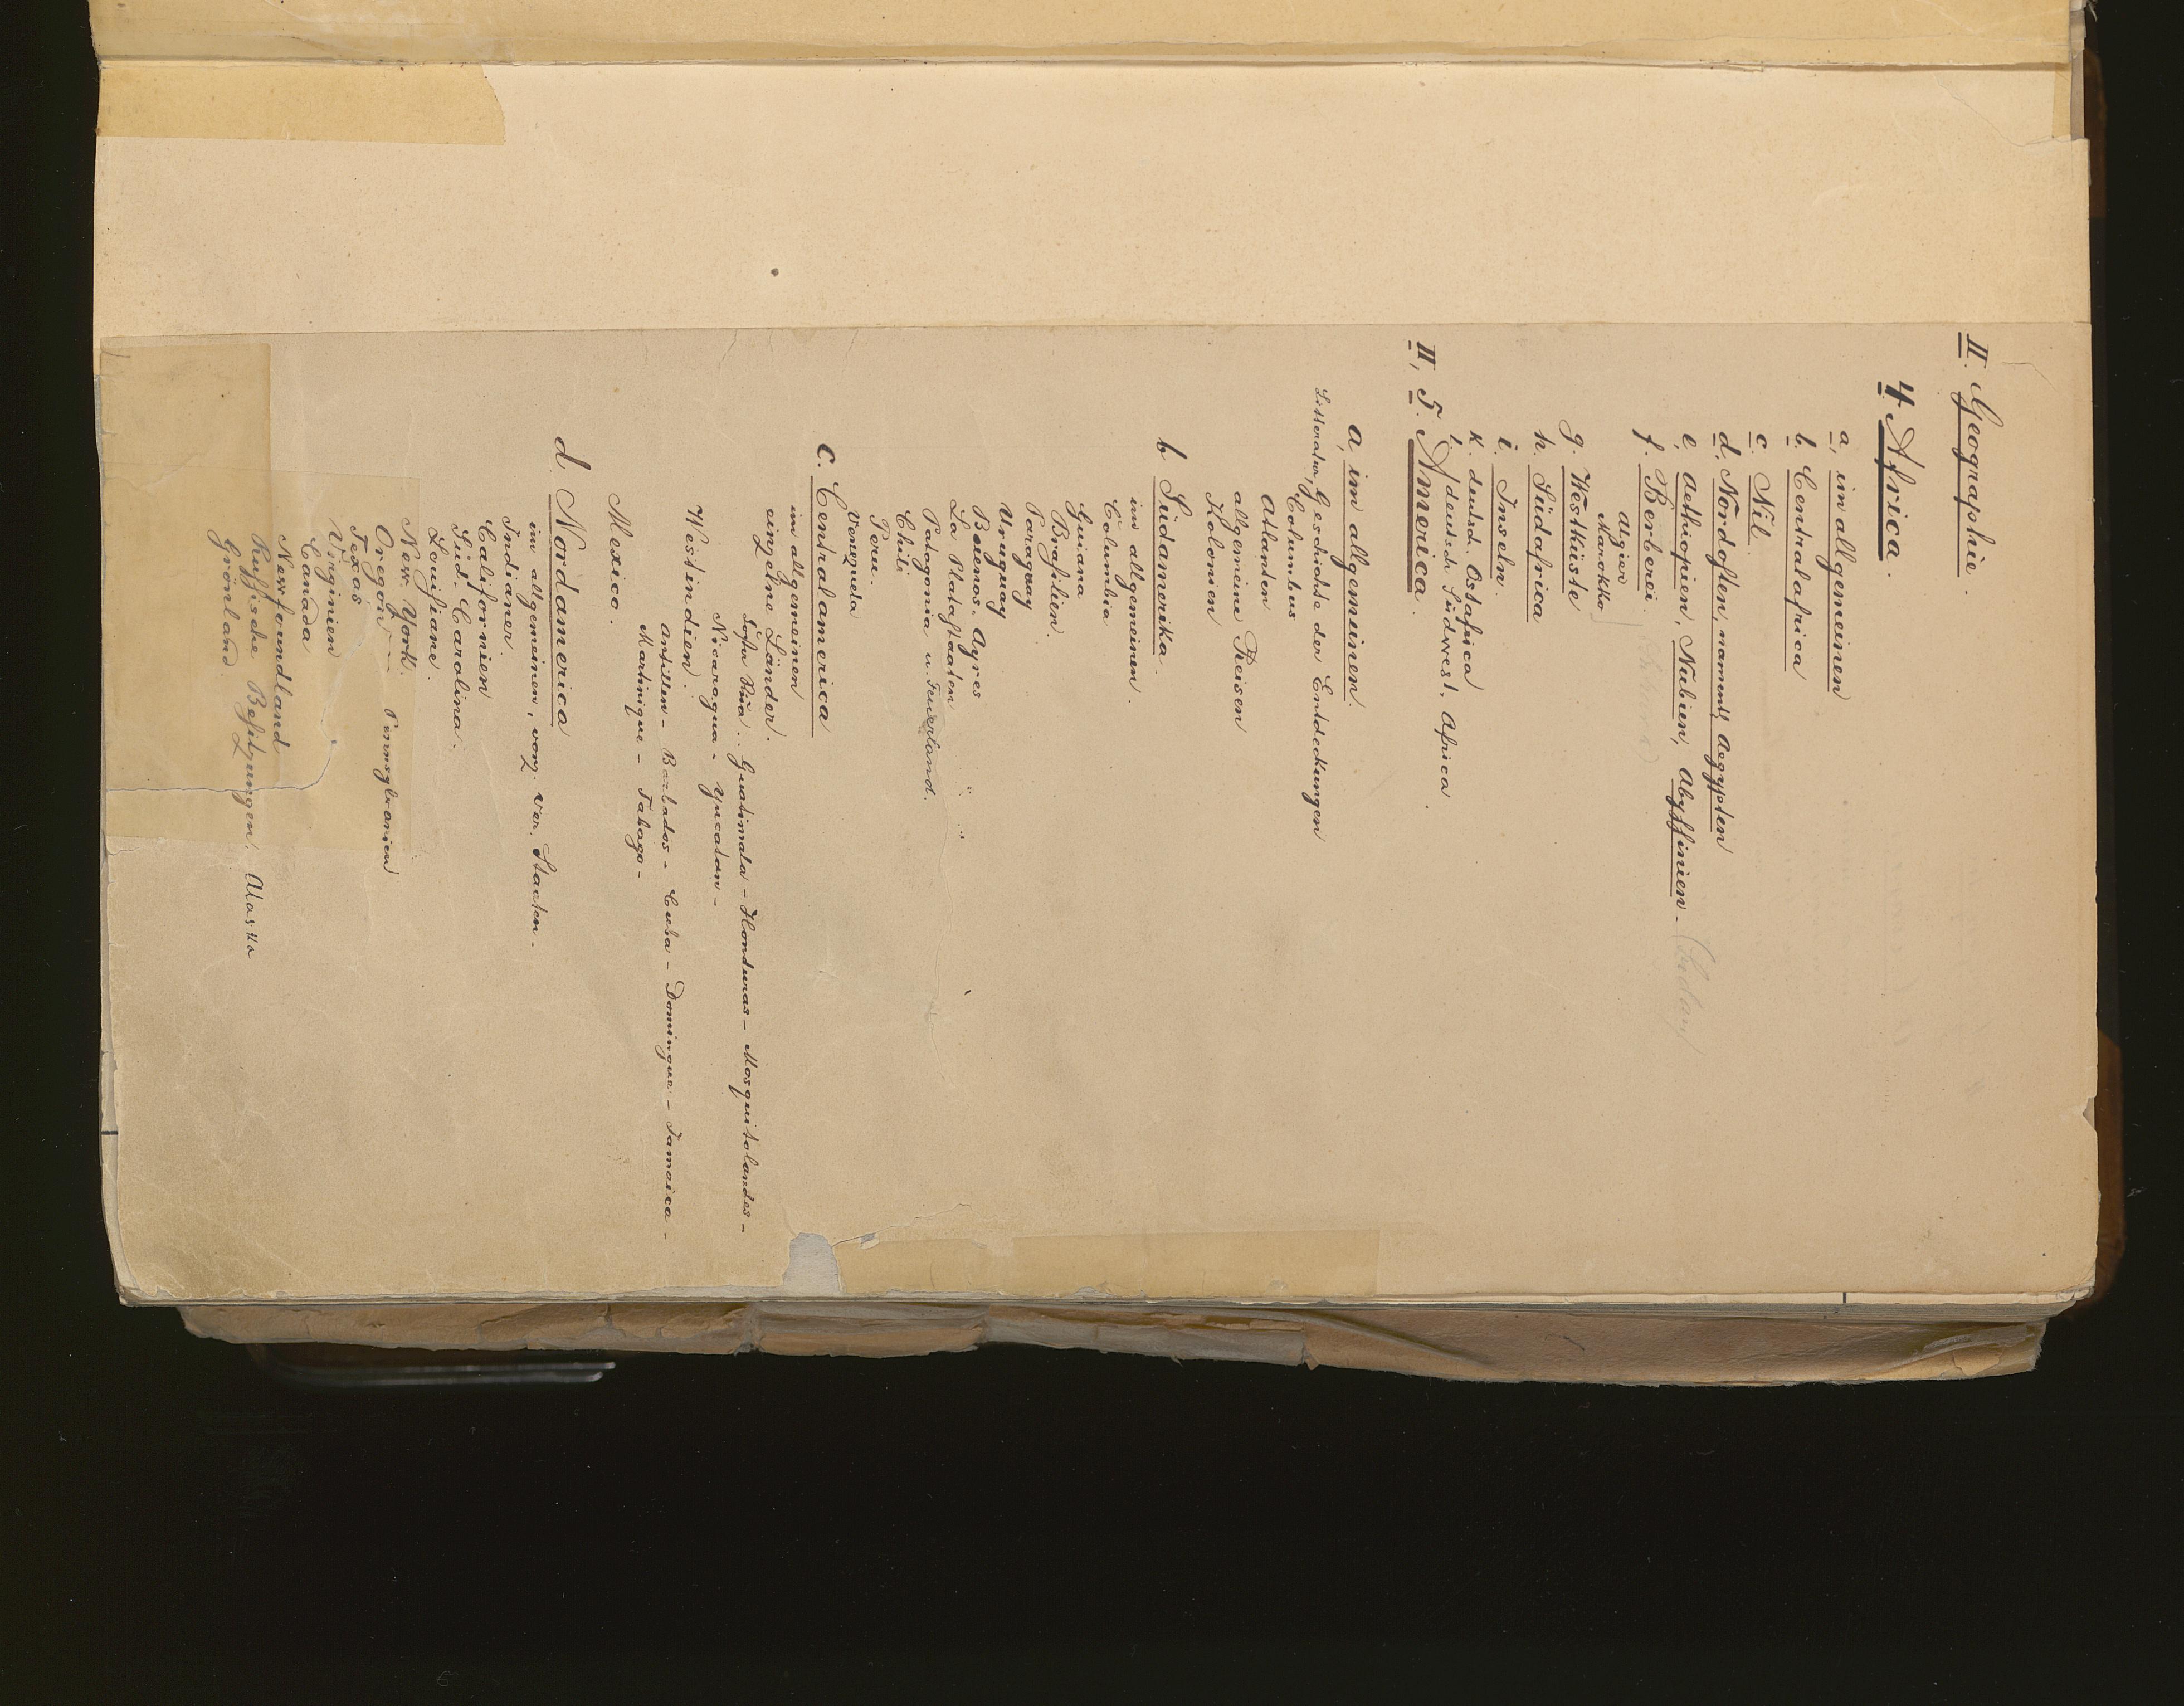 II. Geographie.
4. Africa.
a, im allgemeinen
b. Centralafrica
c. Nil.
d. Nordosten, namentl. Aegypten
e, Aethiopien, Nubien, Abyssinien - (Sudan)
f. Berberei.
Algier
Marokko
g. Westküste
h. Südafrica
i. Inseln.
k. deutsch. Ostafrica
l, deutsch Südwest. Africa.
II, 5. America.
a, im allgemeinen.
Litteratur, Geschichte der Entdeckungen
Columbus
Atlanten
allgemeine Reisen
Kolonien
b Südamerika.
im allgemeinen.
Columbia
Guiana
Brasilien.
Paraguay
Uruguay
Buenos. Ayres
La Platastaaten
Patagonia u. Feuerland.
Chili
Peru.
Venezuela
c. Centralamerica
im allgemeinen
einzelne Länder.
Costa Rica.. Guatimala - Honduras - Mosquitolandes -
Nicaragua - Yucatan -
Westindien.
Antillen - Barbados - Cuba - Domingue - Jamaica -
Martinique - Tabago -
Mexico.
d. Nordamerica
im allgemeinen, vorz. Ver. Staaten -
Indianer.
Californien
Süd. Carolina.
Louisiane.
New York.
Oregon - Pennsylvanien
Texas
Virginien
Canada
Newfoundland
Russische Besitzungen. Alaska
Grönland.